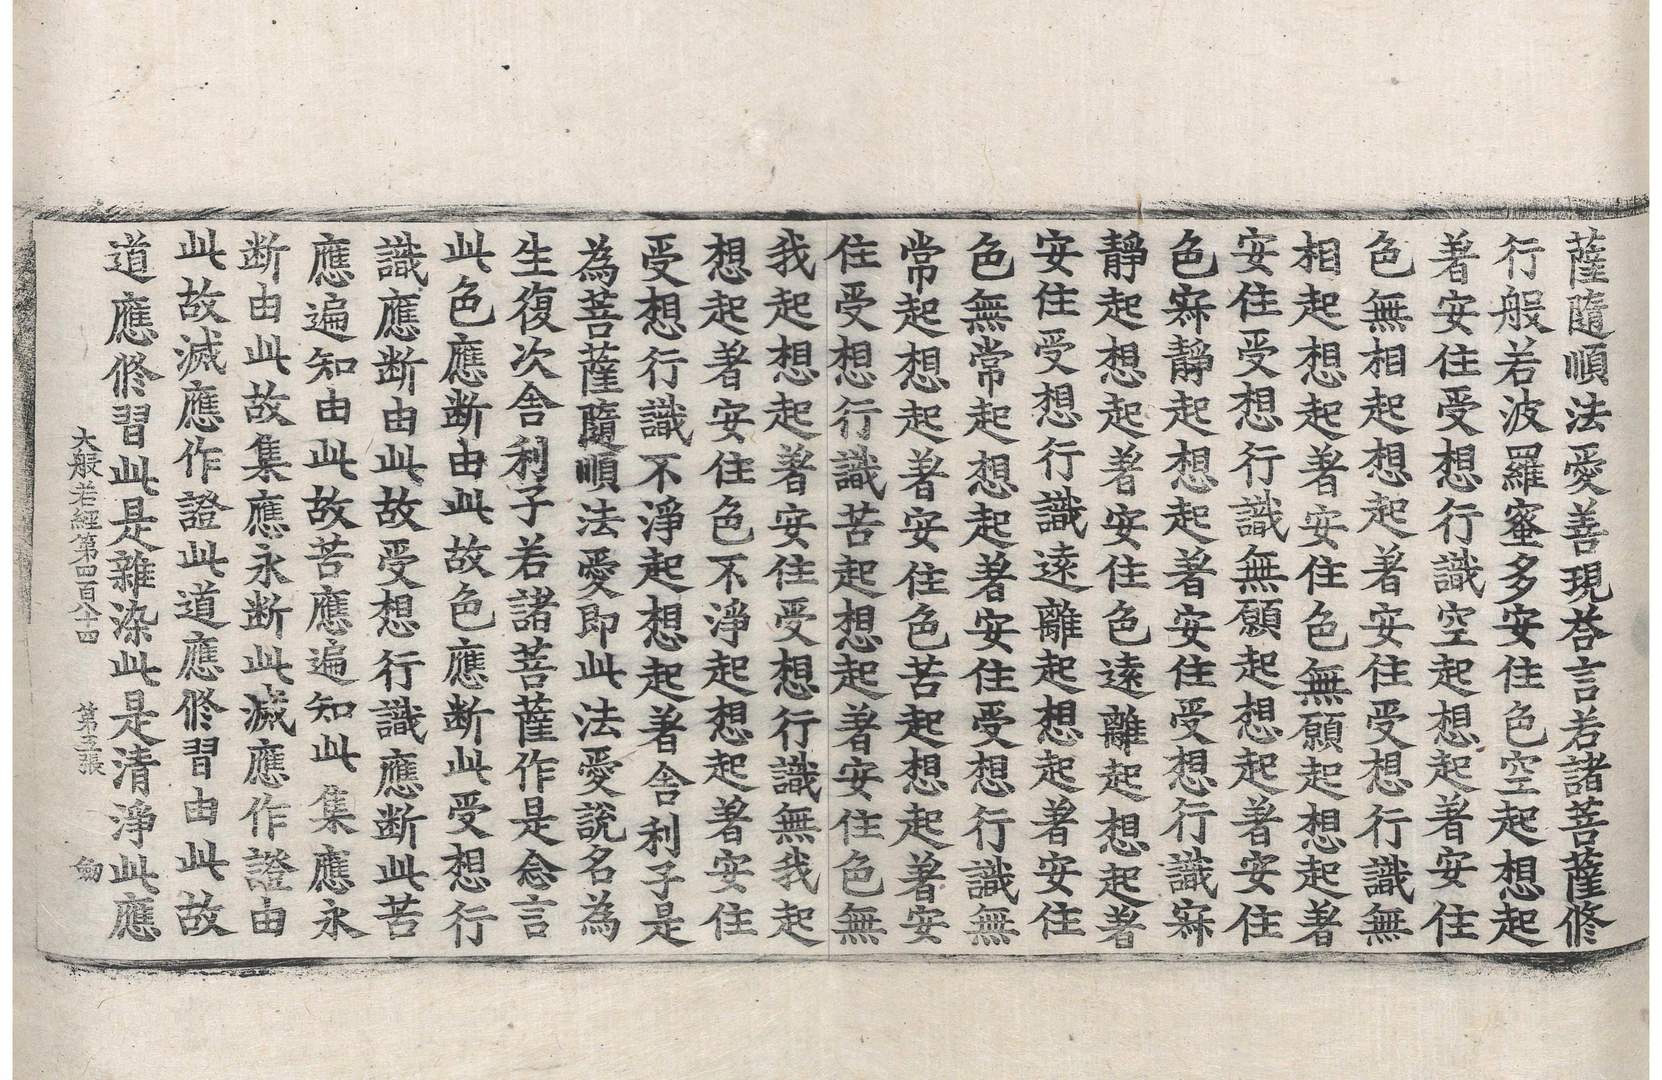 薩隨順法愛善現荅言若諸菩薩修
行般若波羅蜜多安住色空起想起
著安住受想行識空起想起著安住
色無相起想起著安住受想行識無
相起想起著安住色無願起想起著
安住受想行識無願起想起著安住
色寂靜起想起著安住受想行識寂
靜起想起著安住色遠離起想起著
安住受想行識遠離起想起著安住
色無常起想起著安住受想行識無
常起想起著安住色苦起想起著安
住受想行識苦起想起著安住色無
我起想起著安住受想行識無我起
想起著安住色不淨起想起著安住
受想行識不淨起想起著舍利子是
為菩薩隨順法愛即此法愛說名為
生復次舍利子若諸菩薩作是念言
此色應断由此故色應断此受想行
識應断由此故受想行識應断此苦
應遍知由此故苦應遍知此集應永
断由此故集應永断此滅應作證由
此故滅應作證此道應修習由此故
道應修習此是雜染此是清淨此應
大般若經第四百八十四 第五張 劒